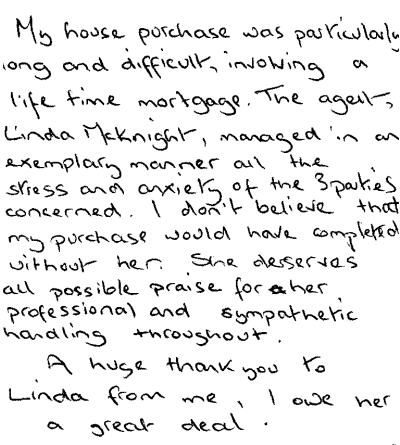 My house purchase was particularly
long and difficult, involving a
life time mortgage. The agent,
Linda McKnight, managed in an
exemplary manner all the
stress and anxiety of the 3 parties
concerned. I don't believe that
my purchase would have completed
without her. She deserves
all possible praise for her
professional and sympathetic
handling throughout.
A huge thank you to
Linda from me, I owe her
a great deal.